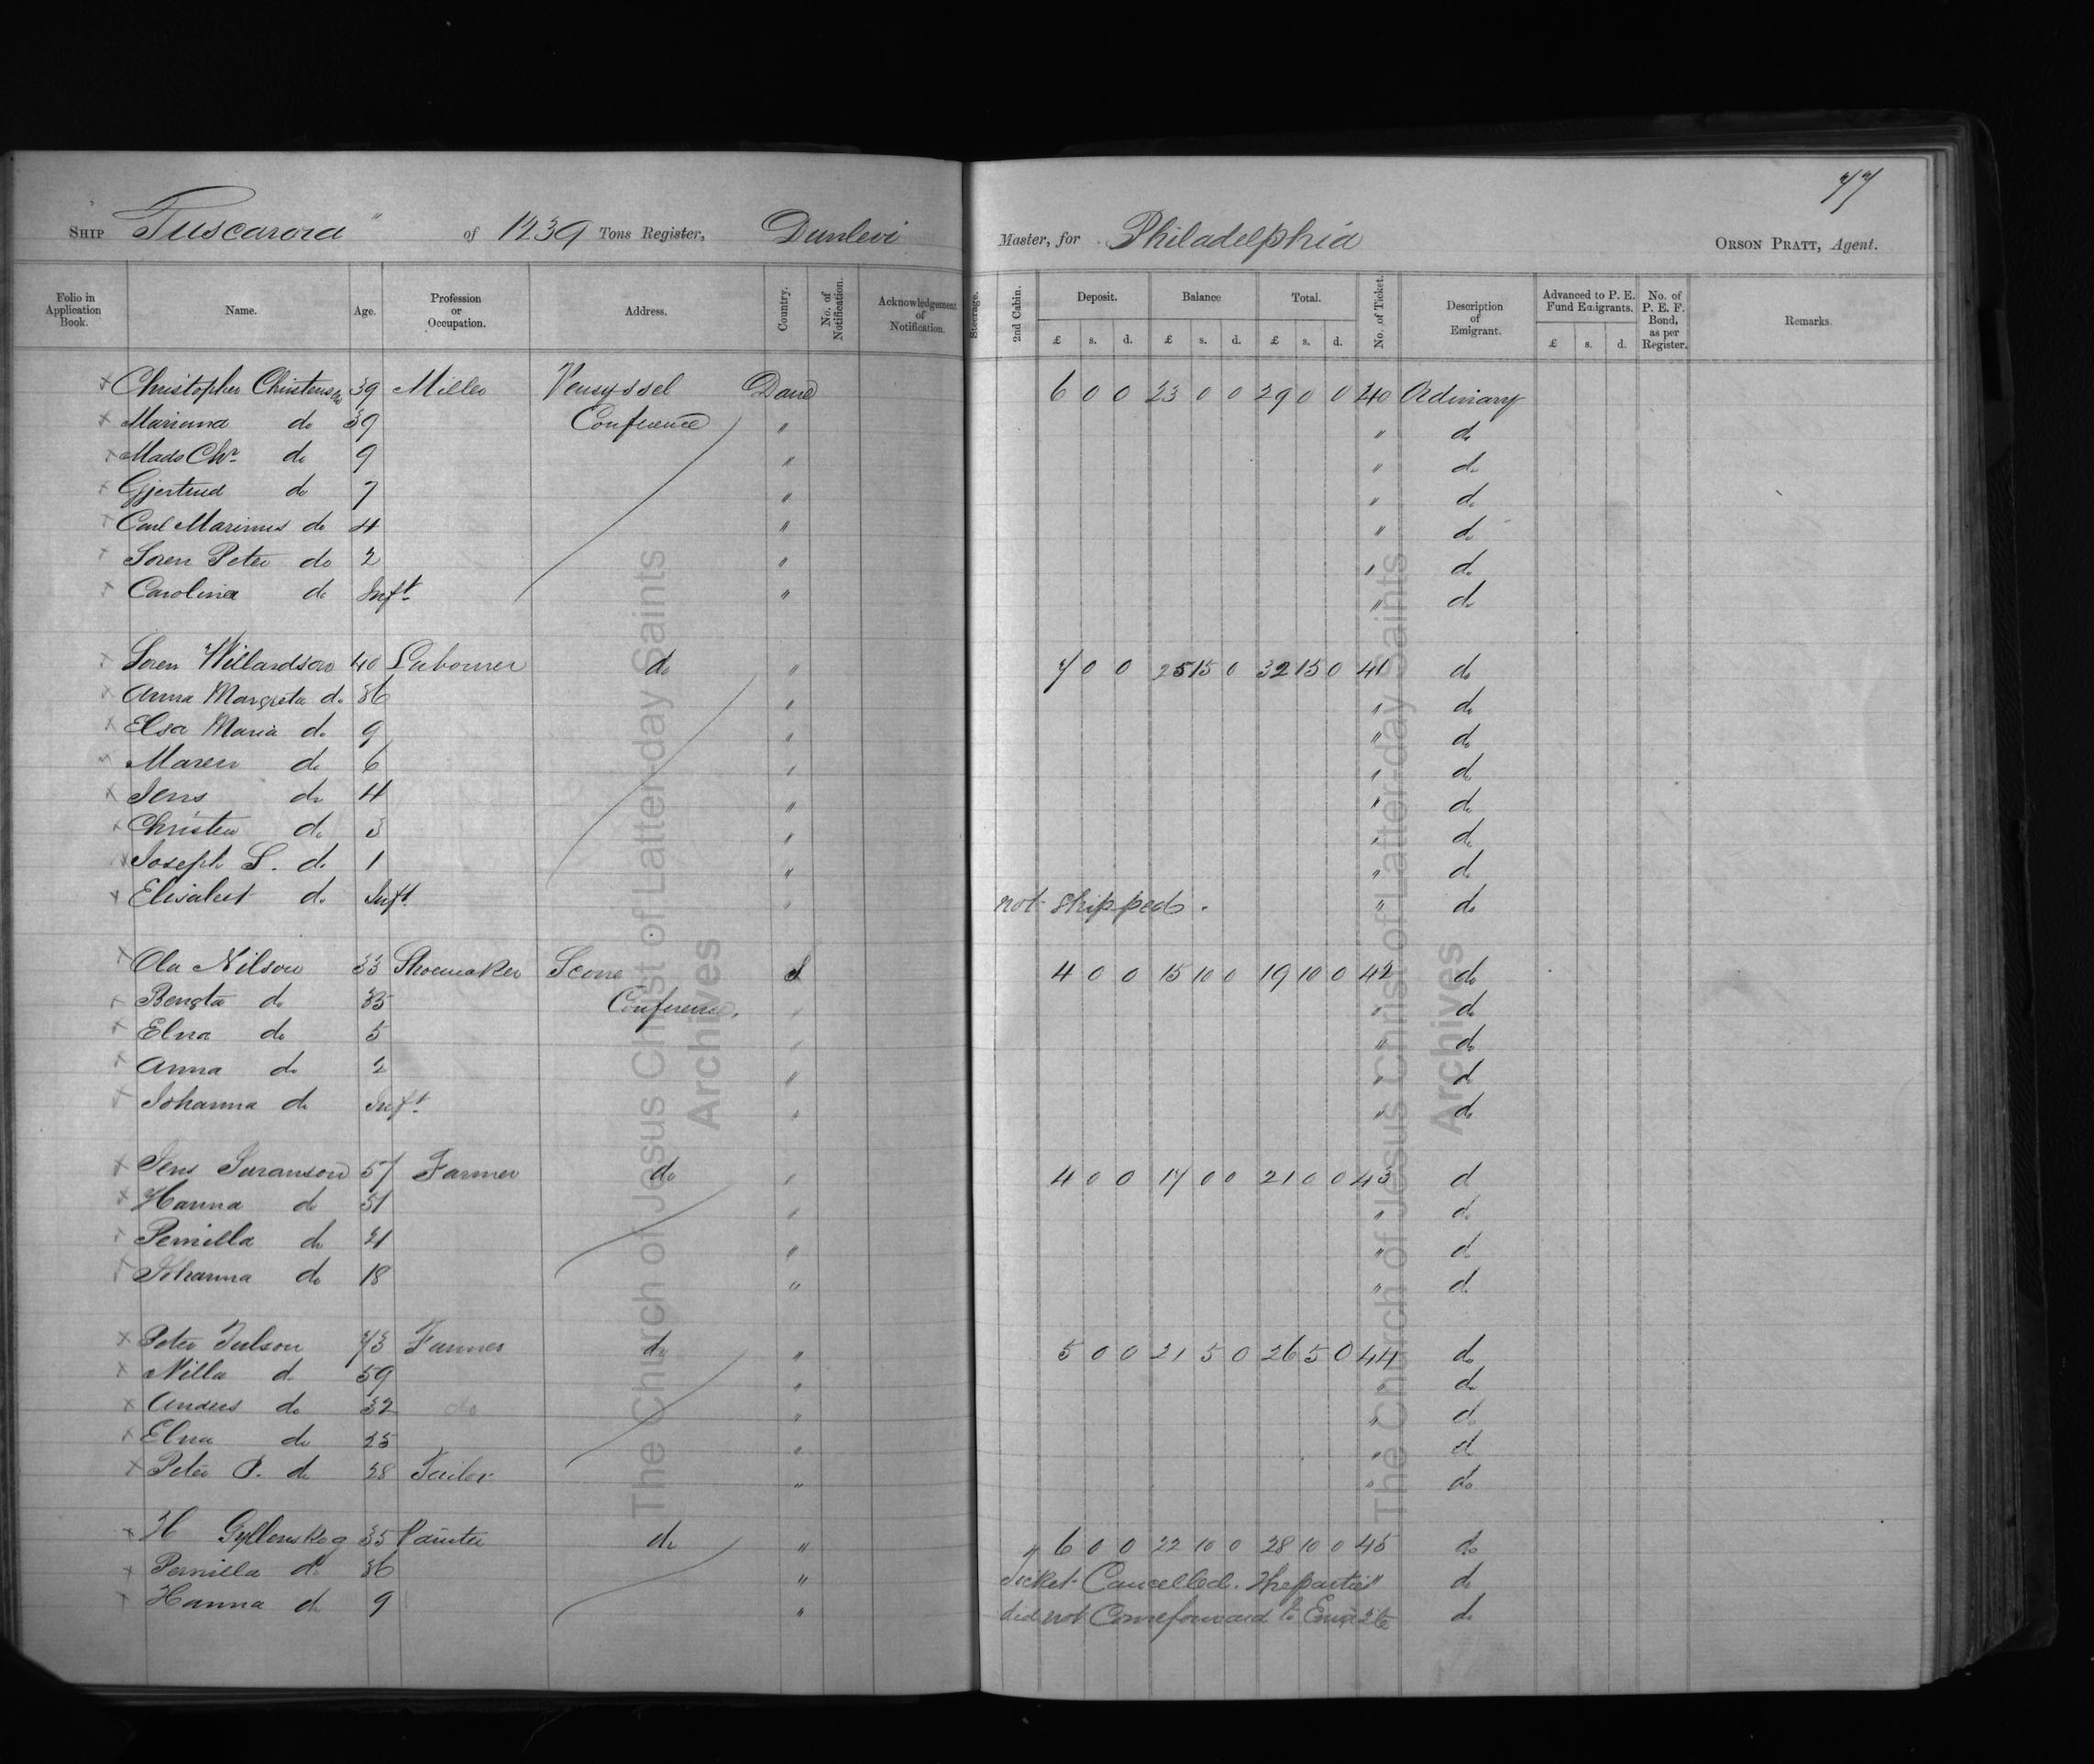 77
SHIP Tuscarora " of 1239 Tons Register, Dunlevi Master, for Philadelphia ORSON PRATT, Agent.
Folio in Application Book. Name. Age. Profession or Occupation. Address. Country. No. of Notification. Acknowledgement of Notification. Steerage. 2nd Cabin. Deposit. Balance Total. No. of Ticket. Description of Emigrant. Advanced to P. E. Fund Emigrants. No. of P. E. F. Bond, as per Register. Remarks.
£ s. d. £ s. d. £ s. d. £ s. d.
x Christopher Christensen 39 Miller Vensyssel Dane 6 0 0 23 0 0 29 0 0 40 Ordinary
x Marianna do 39 Conference " " do
x Mads Chr do 9 " " do
x Gjertrud do 7 " " do
x Carl Marinus do 4 " " do
x Soren Peter do 2 " " do
x Carolina do Inft " " do
x Soren Willardson 40 Labourer do " 7 0 0 25 15 0 32 15 0 41 do
x Anna Margreta do 36 " " do
x Elsa Maria do 9 " " do
x Maren do 6 " " do
x Jens do 4 " " do
x Christen do 3 " " do
x Joseph S. do 1 " " do
x Elisabet do Inft " not shipped. " do
x Ola Nilson 33 Shoemaker Scone S 4 0 0 15 10 0 19 10 0 42 do
x Bengta do 33 Conference. " " do
x Elna do 5 " " do
x Anna do 2 " " do
x Johanna do Inft " " do
x Jens Suranson 57 Farmer do " 4 0 0 17 0 0 21 0 0 43 do
x Hanna do 51 " " do
x Pernilla do 21 " " do
x Johanna do 18 " " do
x Peter Tulson 73 Farmer do " 5 0 0 21 5 0 26 5 0 44 do
x Nilla do 59 " " do
x Anders do 32 do " " do
x Elna do 25 " " do
x Peter P. do 28 Tailor " " do
x H Gyllenskog 35 Painter do " 6 0 0 22 10 0 28 10 0 45 do
x Pernilla do 36 " Ticket Cancelled. The parties " do
x Hanna do 9 " did not Come forward to Emigrate do
The Church of Jesus Christ of Latter-day Saints
Archives
The Church of Jesus Christ of Latter-day Saints
Archives